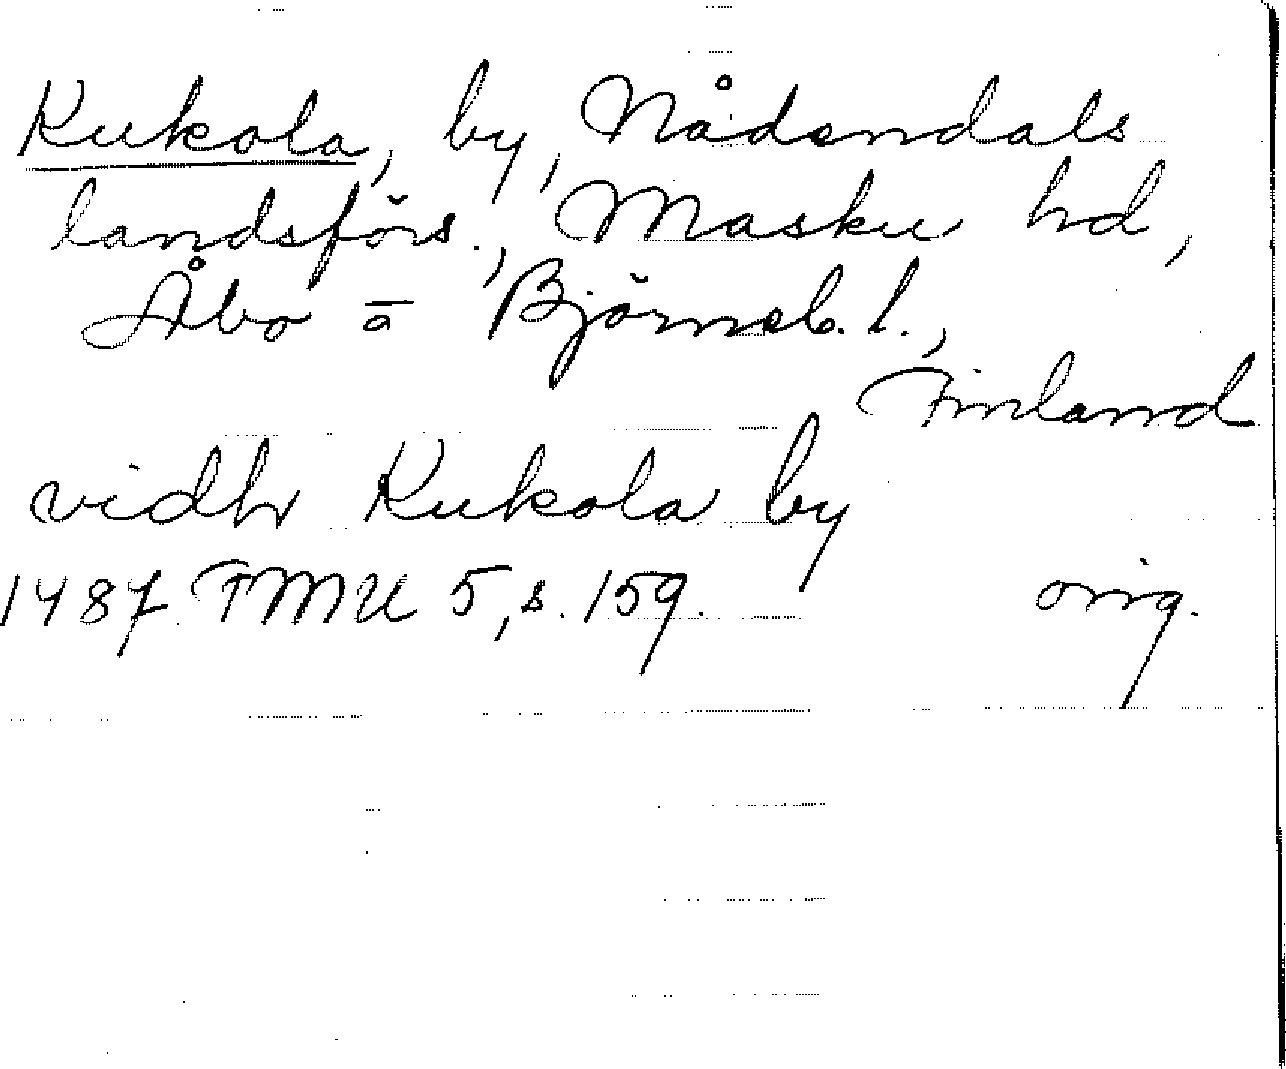 Kukola, by, Nådendals
landsförs., Masku hd,
Åbo o Björneb. l.,
Finland
vidh Kukola by
1487 FMU 5, s. 159. orig.